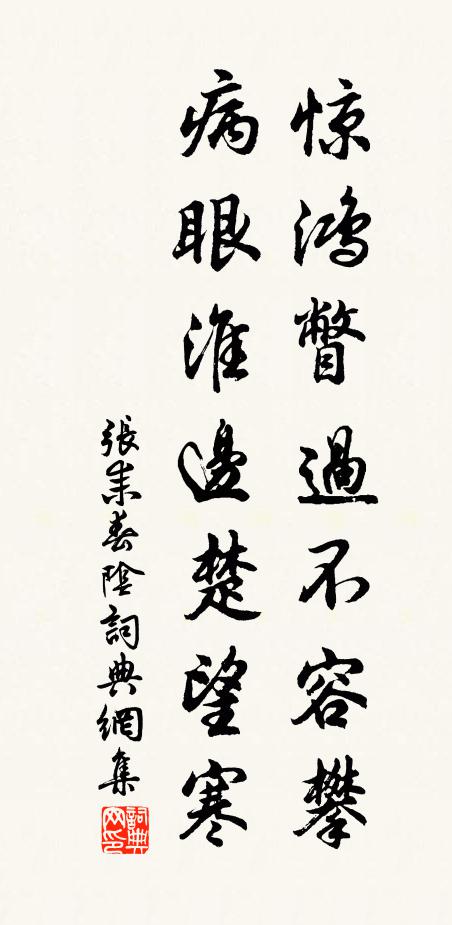 惊鸿瞥過不容攀
病眼淮邊楚望寒
張耒春陰詞典網集
詞典網印